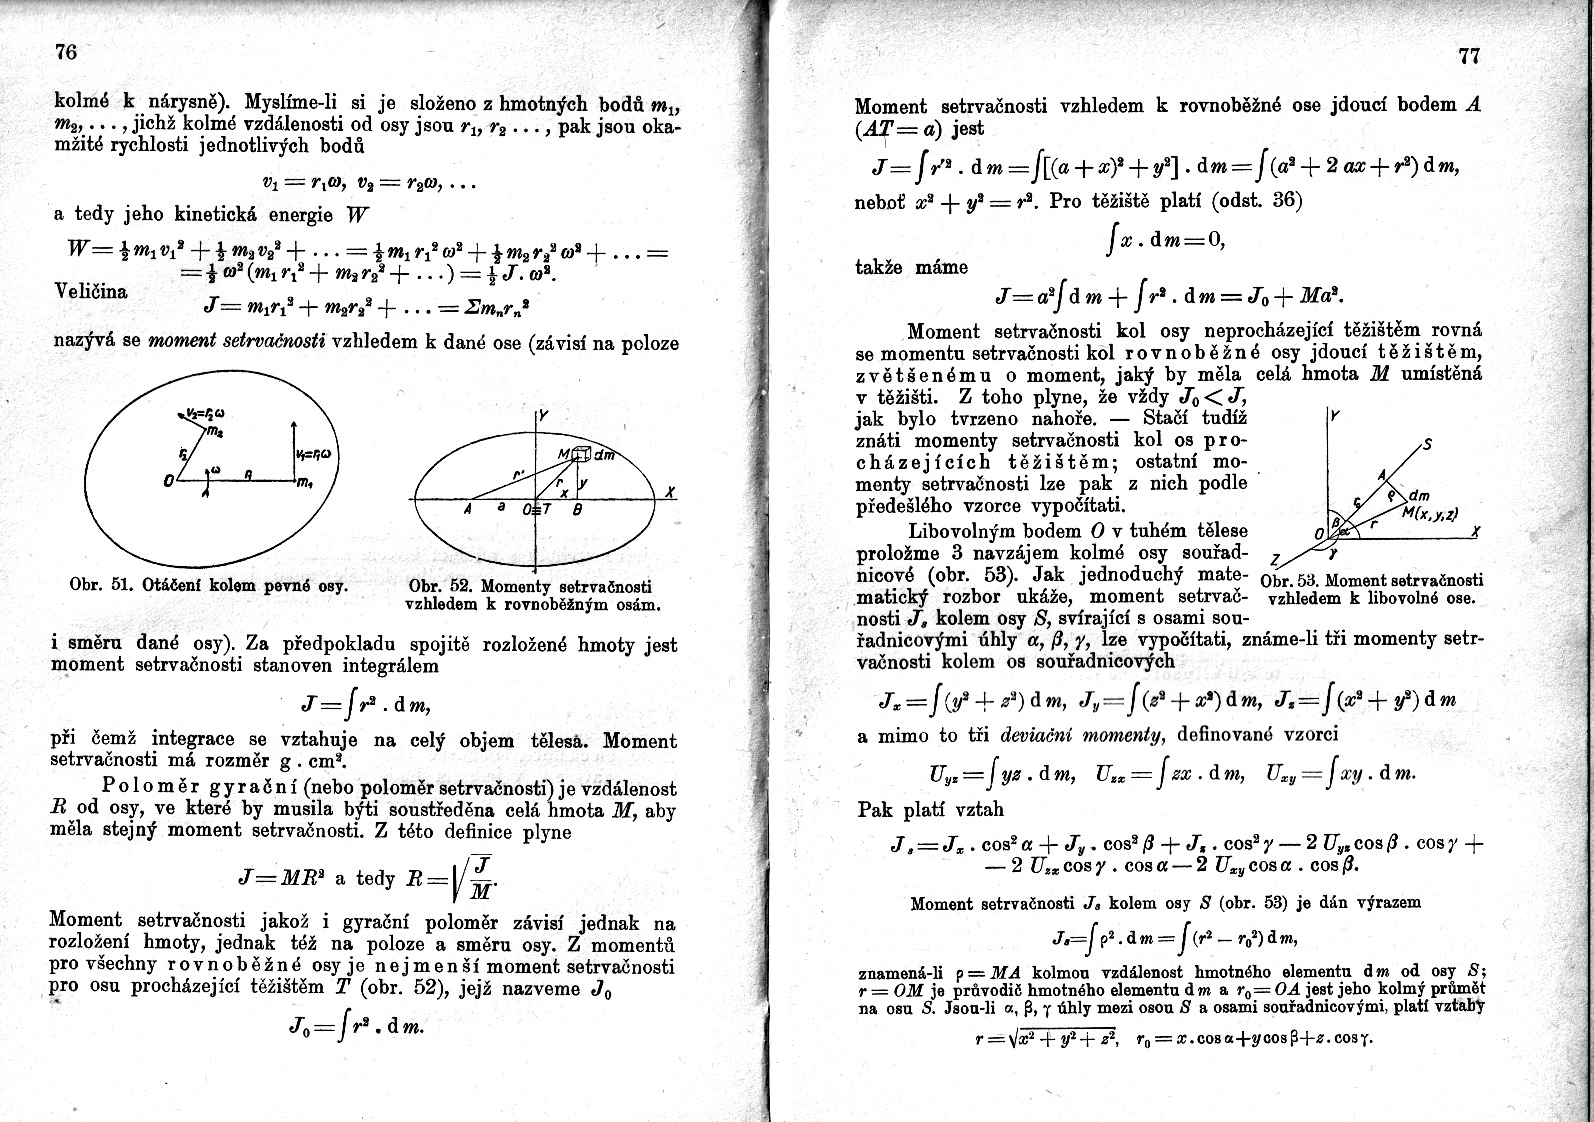 76
kolmé k nárysně). Myslíme-li si je složeno z hmotných bodů m₁,
m₂, . . . , jichž kolmé vzdálenosti od osy jsou r₁, r₂ . . . , pak jsou oka-
mžité rychlosti jednotlivých bodů
v₁ = r₁ω, v₂ = r₂ω, . . .
a tedy jeho kinetická energie W
W = ½ m₁ v₁² + ½ m₂ v₂² + . . . = ½ m₁ r₁² ω² + ½ m₂ r₂² ω² + . . . =
= ½ ω² (m₁ r₁² + m₂ r₂² + . . .) = ½ J . ω².
Veličina
J = m₁r₁² + m₂r₂² + . . . = Σmₙrₙ²
nazývá se moment setrvačnosti vzhledem k dané ose (závisí na poloze
v₂=r₂ω
m₂
r₂
v₁=r₁ω
O
ω
r₁
m₁
Y
M
dm
r'
r
y
x
X
A
a
O≡T
B
Obr. 51. Otáčení kolem pevné osy.
Obr. 52. Momenty setrvačnosti
vzhledem k rovnoběžným osám.
i směru dané osy). Za předpokladu spojitě rozložené hmoty jest
moment setrvačnosti stanoven integrálem
J = ∫ r² . d m,
při čemž integrace se vztahuje na celý objem tělesa. Moment
setrvačnosti má rozměr g . cm².
Poloměr gyrační (nebo poloměr setrvačnosti) je vzdálenost
R od osy, ve které by musila býti soustředěna celá hmota M, aby
měla stejný moment setrvačnosti. Z této definice plyne
J = MR² a tedy R = √(J/M).
Moment setrvačnosti jakož i gyrační poloměr závisí jednak na
rozložení hmoty, jednak též na poloze a směru osy. Z momentů
pro všechny rovnoběžné osy je nejmenší moment setrvačnosti
pro osu procházející těžištěm T (obr. 52), jejž nazveme J₀
J₀ = ∫ r² . d m.
77
Moment setrvačnosti vzhledem k rovnoběžné ose jdoucí bodem A
(AT = a) jest
J = ∫ r'² . d m = ∫ [(a + x)² + y²] . d m = ∫ (a² + 2 ax + r²) d m,
neboť x² + y² = r². Pro těžiště platí (odst. 36)
∫ x . d m = 0,
takže máme
J = a² ∫ d m + ∫ r² . d m = J₀ + Ma².
Moment setrvačnosti kol osy neprocházející těžištěm rovná
se momentu setrvačnosti kol rovnoběžné osy jdoucí těžištěm,
zvětšenému o moment, jaký by měla celá hmota M umístěná
v těžišti. Z toho plyne, že vždy J₀ < J,
jak bylo tvrzeno nahoře. — Stačí tudíž
znáti momenty setrvačnosti kol os pro-
cházejících těžištěm; ostatní mo-
menty setrvačnosti lze pak z nich podle
předešlého vzorce vypočítati.
Libovolným bodem O v tuhém tělese
proložme 3 navzájem kolmé osy souřad-
nicové (obr. 53). Jak jednoduchý mate-
matický rozbor ukáže, moment setrvač-
nosti Jₛ kolem osy S, svírající s osami sou-
Y
S
A
ϱ
dm
r₀
M(x,y,z)
β
r
O
α
X
Z
γ
Obr. 53. Moment setrvačnosti
vzhledem k libovolné ose.
řadnicovými úhly α, β, γ, lze vypočítati, známe-li tři momenty setr-
vačnosti kolem os souřadnicových
Jₓ = ∫ (y² + z²) d m, J_y = ∫ (z² + x²) d m, J_z = ∫ (x² + y²) d m
a mimo to tři deviační momenty, definované vzorci
U_yz = ∫ yz . d m, U_zx = ∫ zx . d m, U_xy = ∫ xy . d m.
Pak platí vztah
Jₛ = Jₓ . cos² α + J_y . cos² β + J_z . cos² γ — 2 U_yz cos β . cos γ +
— 2 U_zx cos γ . cos α — 2 U_xy cos α . cos β.
Moment setrvačnosti Jₛ kolem osy S (obr. 53) je dán výrazem
Jₛ = ∫ ρ² . d m = ∫ (r² — r₀²) d m,
znamená-li ρ = MA kolmou vzdálenost hmotného elementu dm od osy S;
r = OM je průvodič hmotného elementu d m a r₀ = OA jest jeho kolmý průmět
na osu S. Jsou-li α, β, γ úhly mezi osou S a osami souřadnicovými, platí vztahy
r = √(x² + y² + z²), r₀ = x . cos α + y cos β + z . cos γ.